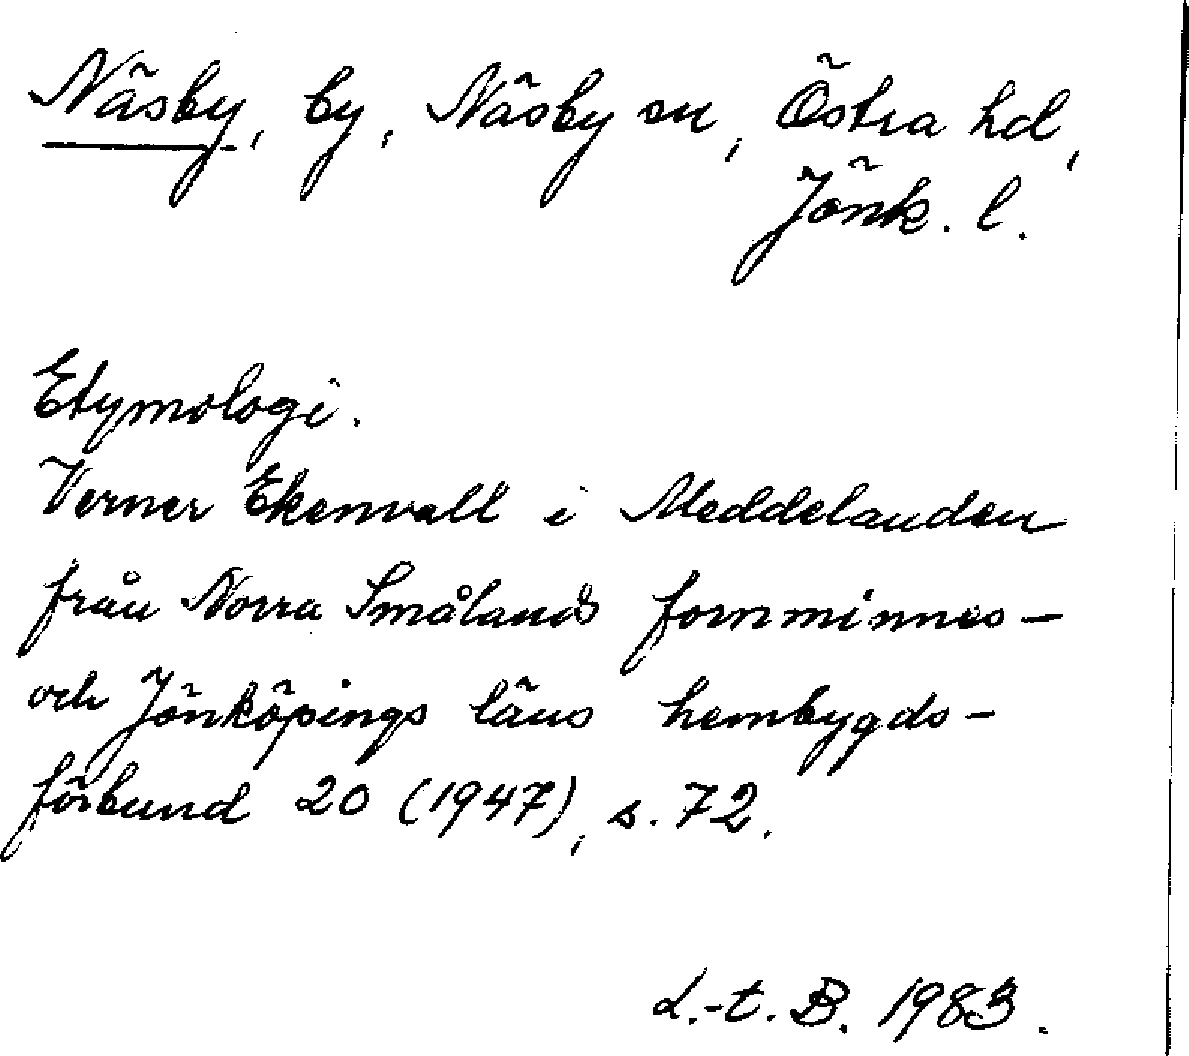 Näsby, by, Näsby sn, Östra hd,
Jönk. l.
Etymologi.
Verner Ekenvall i Meddelanden
från Norra Smålands fornminnes-
och Jönköpings läns hembygds-
förbund 20 (1947), s. 72.
L.-t. B. 1983.